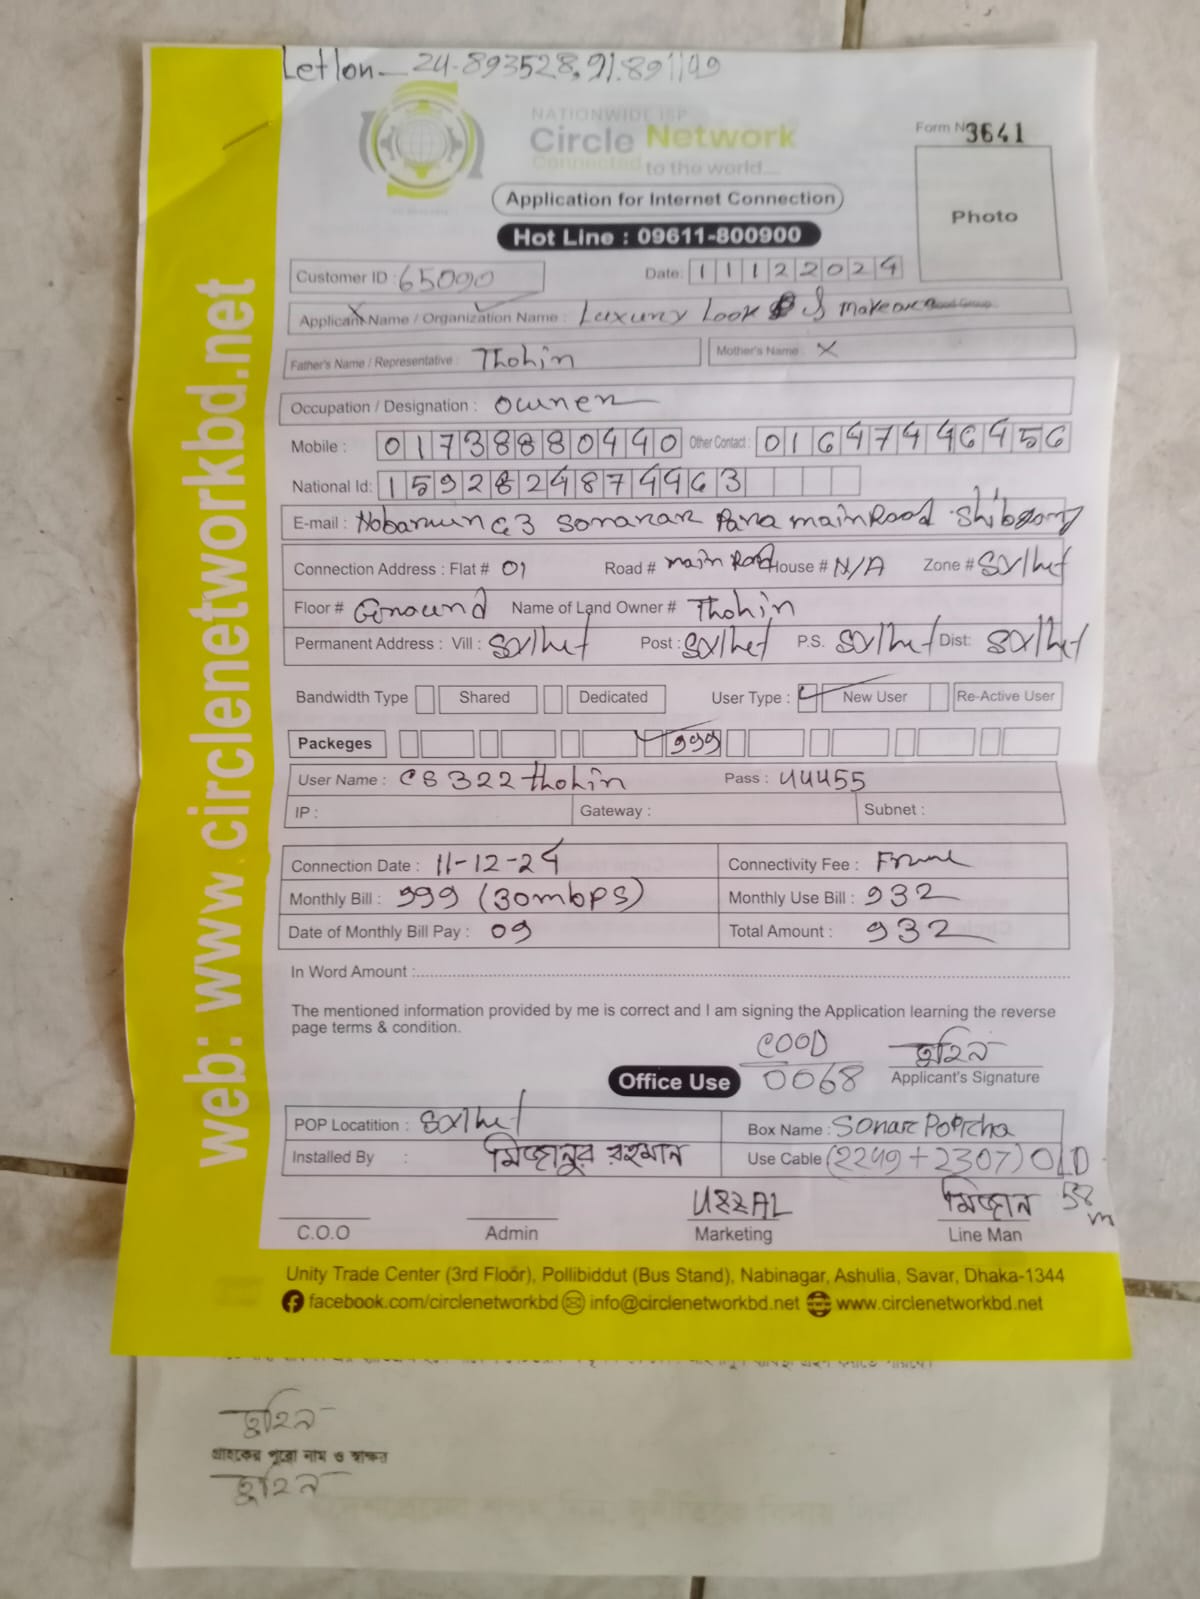 Letlon - 24.893528, 91.891149
NATIONWIDE ISP
Circle Network
Connected to the world....
Form N 3641
Photo
Application for Internet Connection
Hot Line : 09611-800900
Customer ID : 65090
Date: 11122024
Applicant Name / Organization Name : Luxury Look
Father's Name / Representative : Thohin
Mother's Name X
Occupation / Designation : owner
Mobile : 01738880440 Other Contact : 01647446456
National Id: 1592824874463
E-mail : Nobarun 63 Sonarar Para main Road Shibgong
Connection Address : Flat # 01 Road # main Road House # N/A Zone # Sylhet
Floor # Ground Name of Land Owner # Thohin
Permanent Address : Vill : Sylhet Post : Sylhet P.S. Sylhet Dist: Sylhet
Bandwidth Type Shared Dedicated User Type : New User Re-Active User
Packeges 999
User Name : CS322thohin Pass : 44455
IP : Gateway : Subnet :
Connection Date : 11-12-24 Connectivity Fee :
Monthly Bill : 999 (30mbps) Monthly Use Bill : 932
Date of Monthly Bill Pay : 09 Total Amount : 932
In Word Amount :
The mentioned information provided by me is correct and I am signing the Application learning the reverse
page terms & condition.
COOD
0068
তুহিন
Office Use
Applicant's Signature
POP Locatition : Sylhet Box Name : Sonar Popicha
Installed By : মিজানুর রহমান Use Cable (2249+2307) OLD
58 m
UZZAL মিজান
C.O.O Admin Marketing Line Man
Unity Trade Center (3rd Floor), Pollibiddut (Bus Stand), Nabinagar, Ashulia, Savar, Dhaka-1344
facebook.com/circlenetworkbd info@circlenetworkbd.net www.circlenetworkbd.net
web: www.circlenetworkbd.net
তুহিন
গ্রাহকের পুরো নাম ও স্বাক্ষর
তুহিন